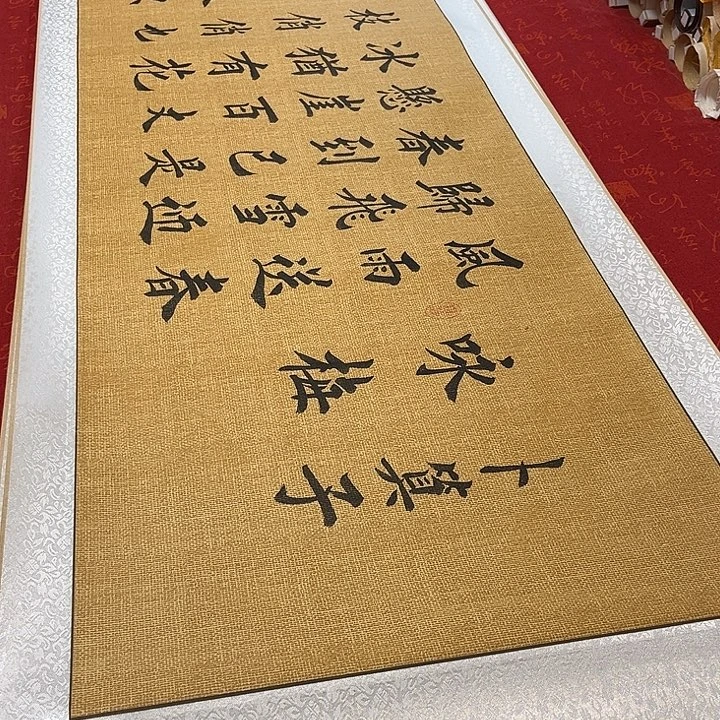 卜算子
咏梅
風雨送春
歸飛雪迎
春到已是
懸崖百丈
冰猶有花
枝俏俏也